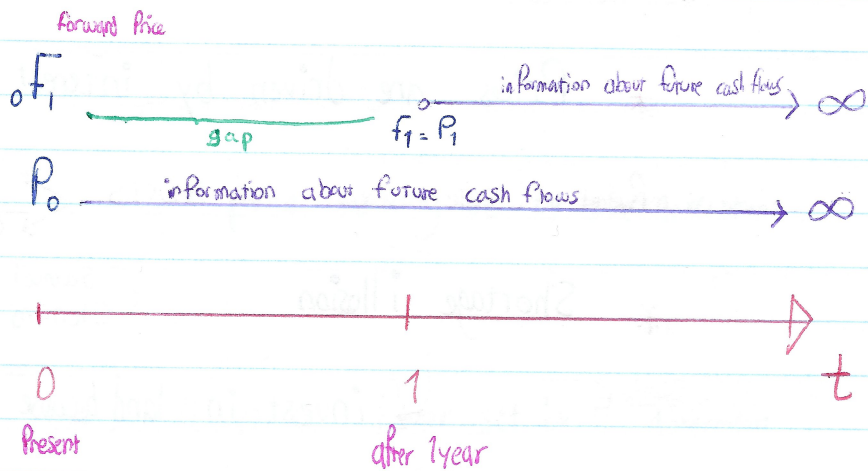 Forward Price
₀F₁
information about future cash flows
∞
gap
f₁ = P₁
P₀
information about future cash flows
∞
0
1
t
Present
after 1 year